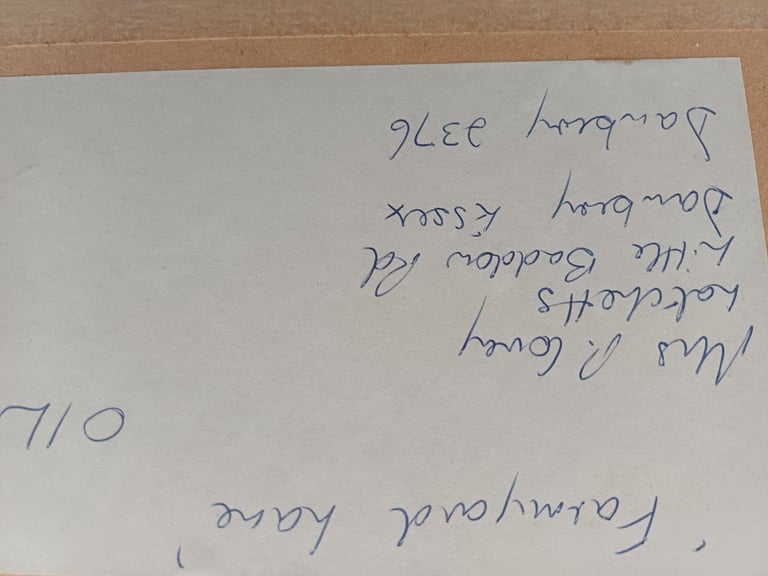 'Farmyard Lane'
OIL
Mrs P. Covey
Latchetts
Little Baddow Rd
Danbury Essex
Danbury 2376